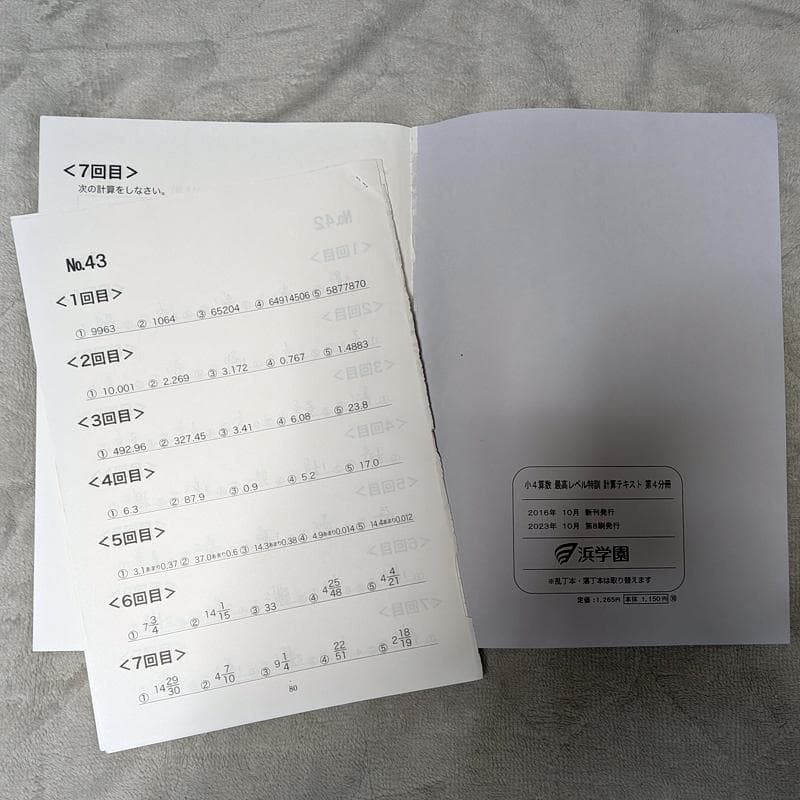 <7回目>
次の計算をしなさい。
No.43
<1回目>
① 9963 ② 1064 ③ 65204 ④ 64914506 ⑤ 5877870
<2回目>
① 10.001 ② 2.269 ③ 3.172 ④ 0.767 ⑤ 1.4883
<3回目>
① 492.96 ② 327.45 ③ 3.41 ④ 6.08 ⑤ 23.8
<4回目>
① 6.3 ② 87.9 ③ 0.9 ④ 5.2 ⑤ 17.0
<5回目>
① 3.1あまり0.37 ② 37.0あまり0.6 ③ 14.3あまり0.38 ④ 4.9あまり0.014 ⑤ 14.4あまり0.012
<6回目>
① 7 3/4 ② 14 1/15 ③ 33 ④ 4 25/48 ⑤ 4 4/21
<7回目>
① 14 29/30 ② 4 7/10 ③ 9 1/4 ④ 22/51 ⑤ 2 18/19
80
小4算数 最高レベル特訓 計算テキスト 第4分冊
2016年 10月 新刊発行
2023年 10月 第8刷発行
浜学園
※乱丁本・落丁本は取り替えます
定価:1,265円 本体 1,150円 ⑩